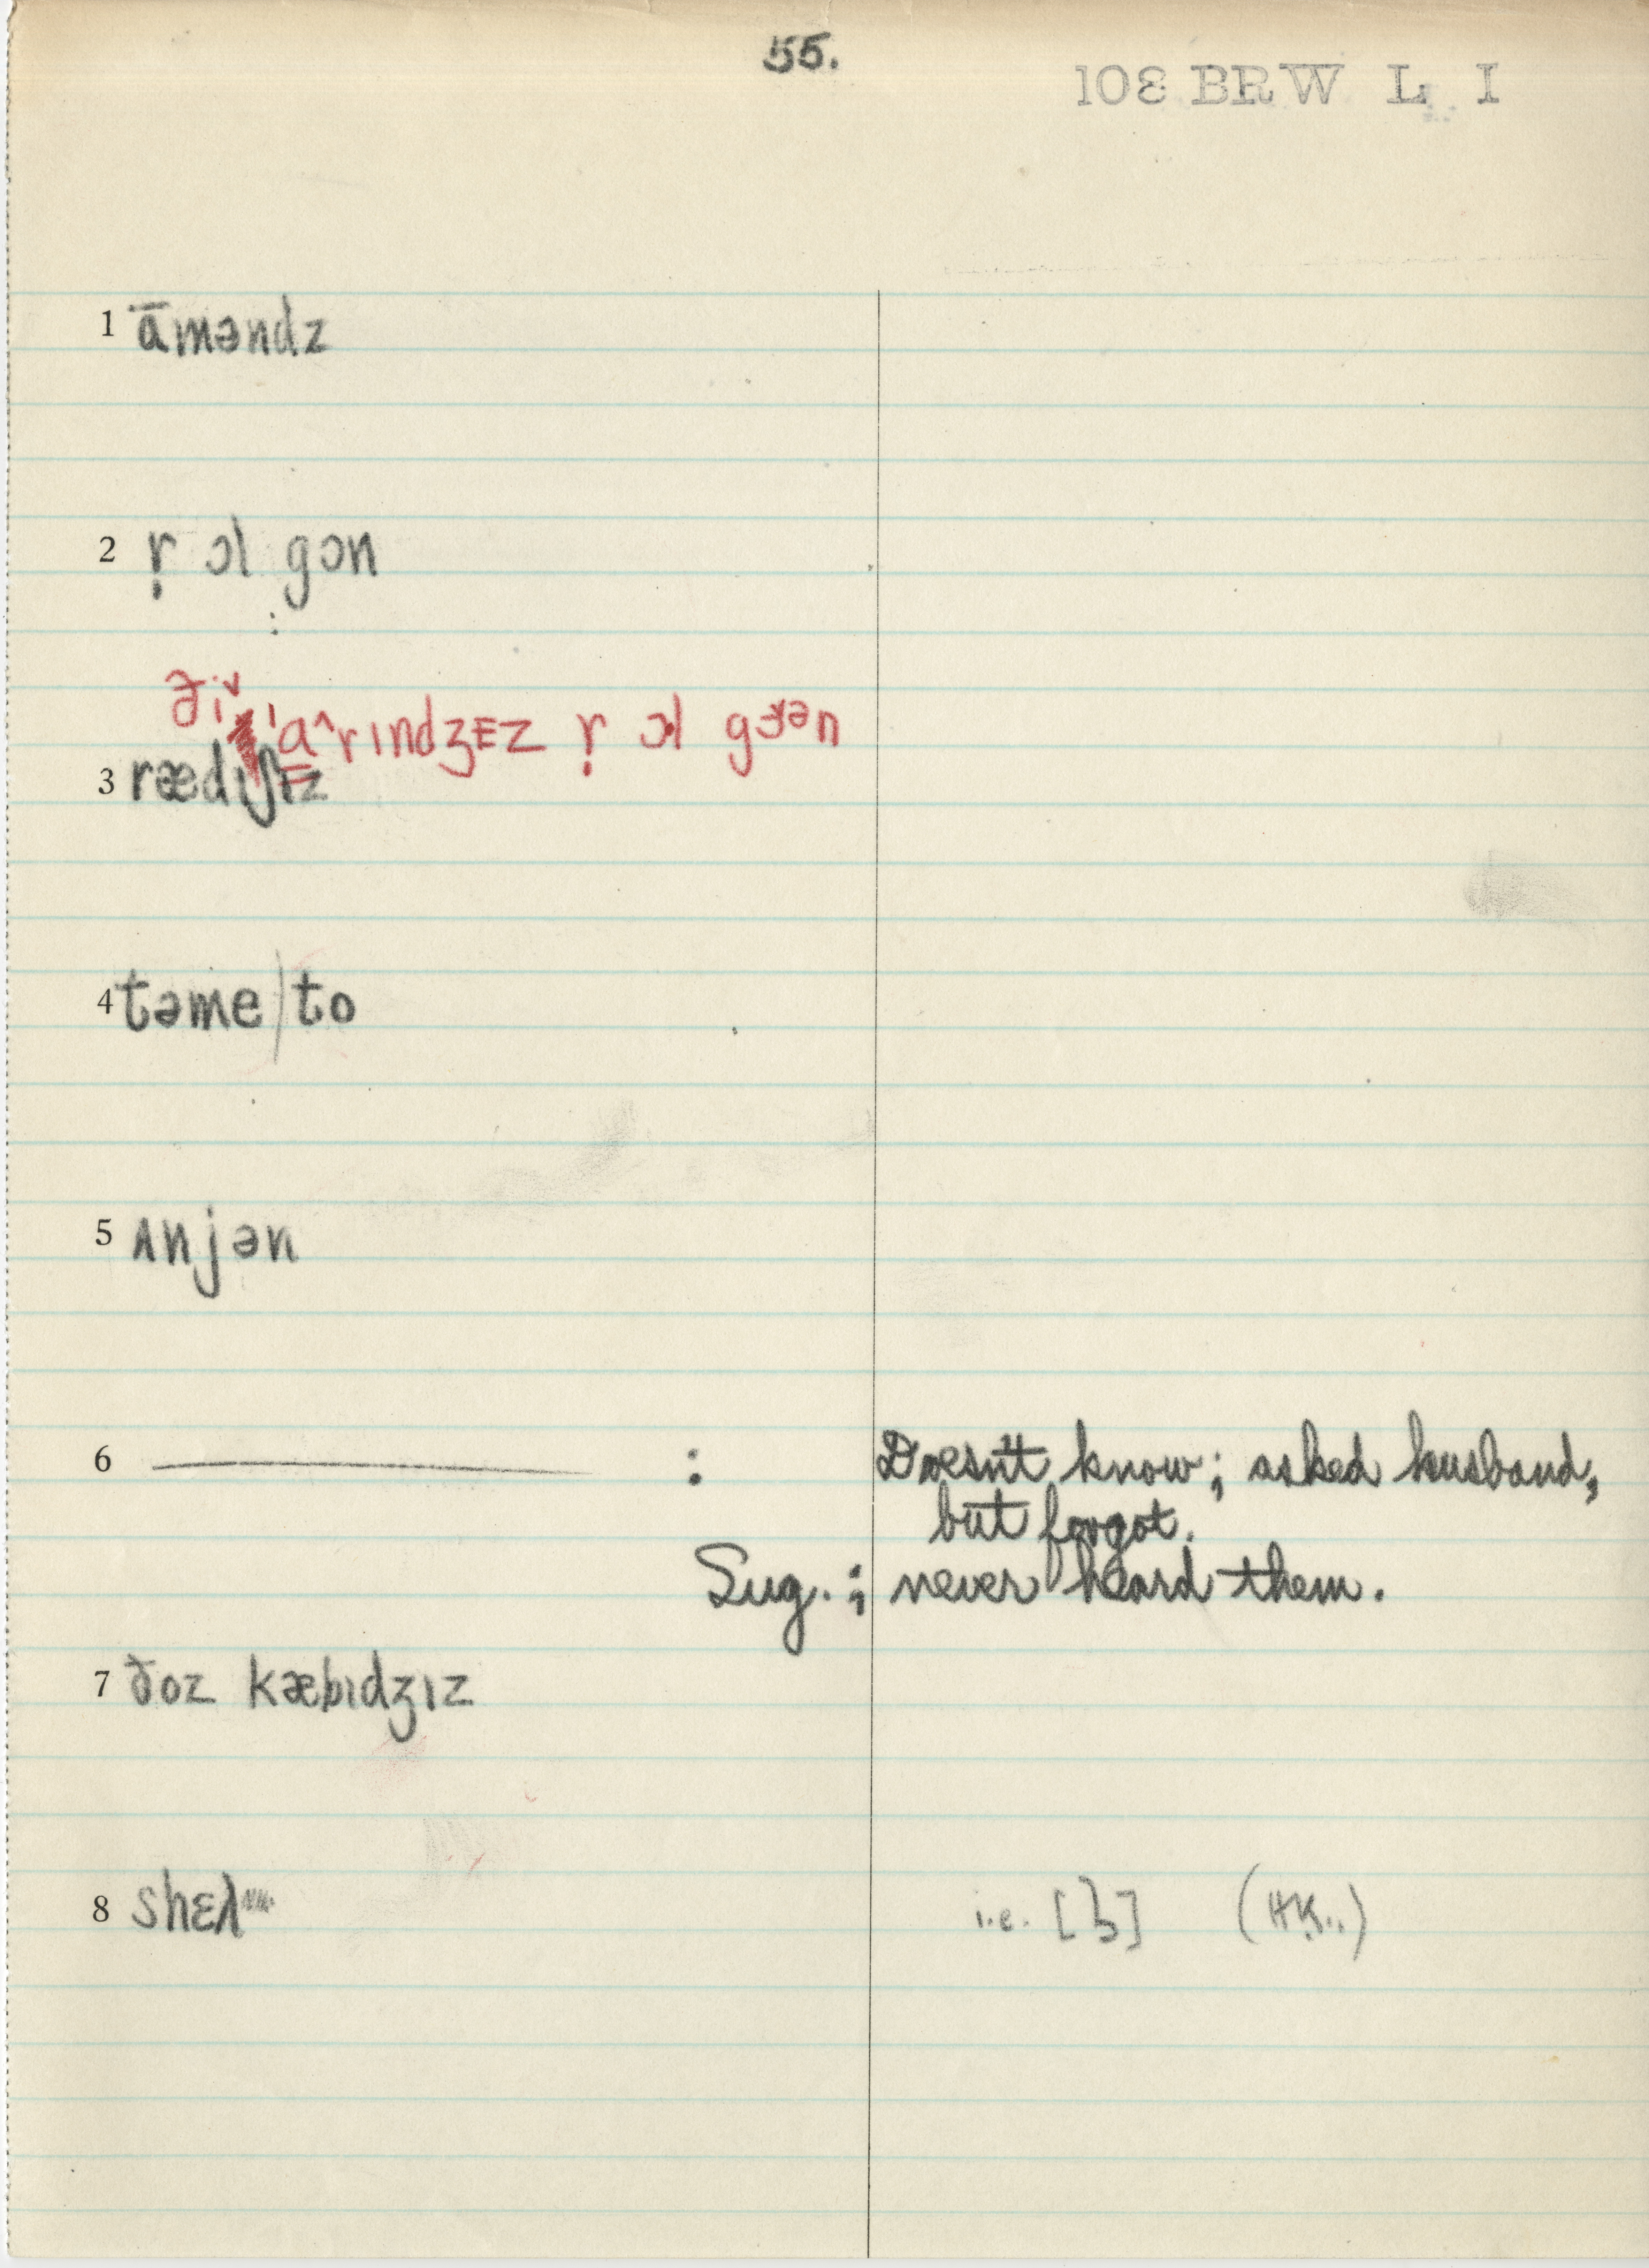 55.
108 BRW L I
1 āməndz
2 ṛ ɔl gɔn
ði ˈɑ^rɪndʒEz ṛ ɔl
3 rædɪʃɪz
4 təme)to
5 ʌnjən
6 ——— : Doesn't know; asked husband,
but forgot.
Sug. ; never heard them.
7 ðoz kæbɪdʒɪz
8
i.e. (HK.)